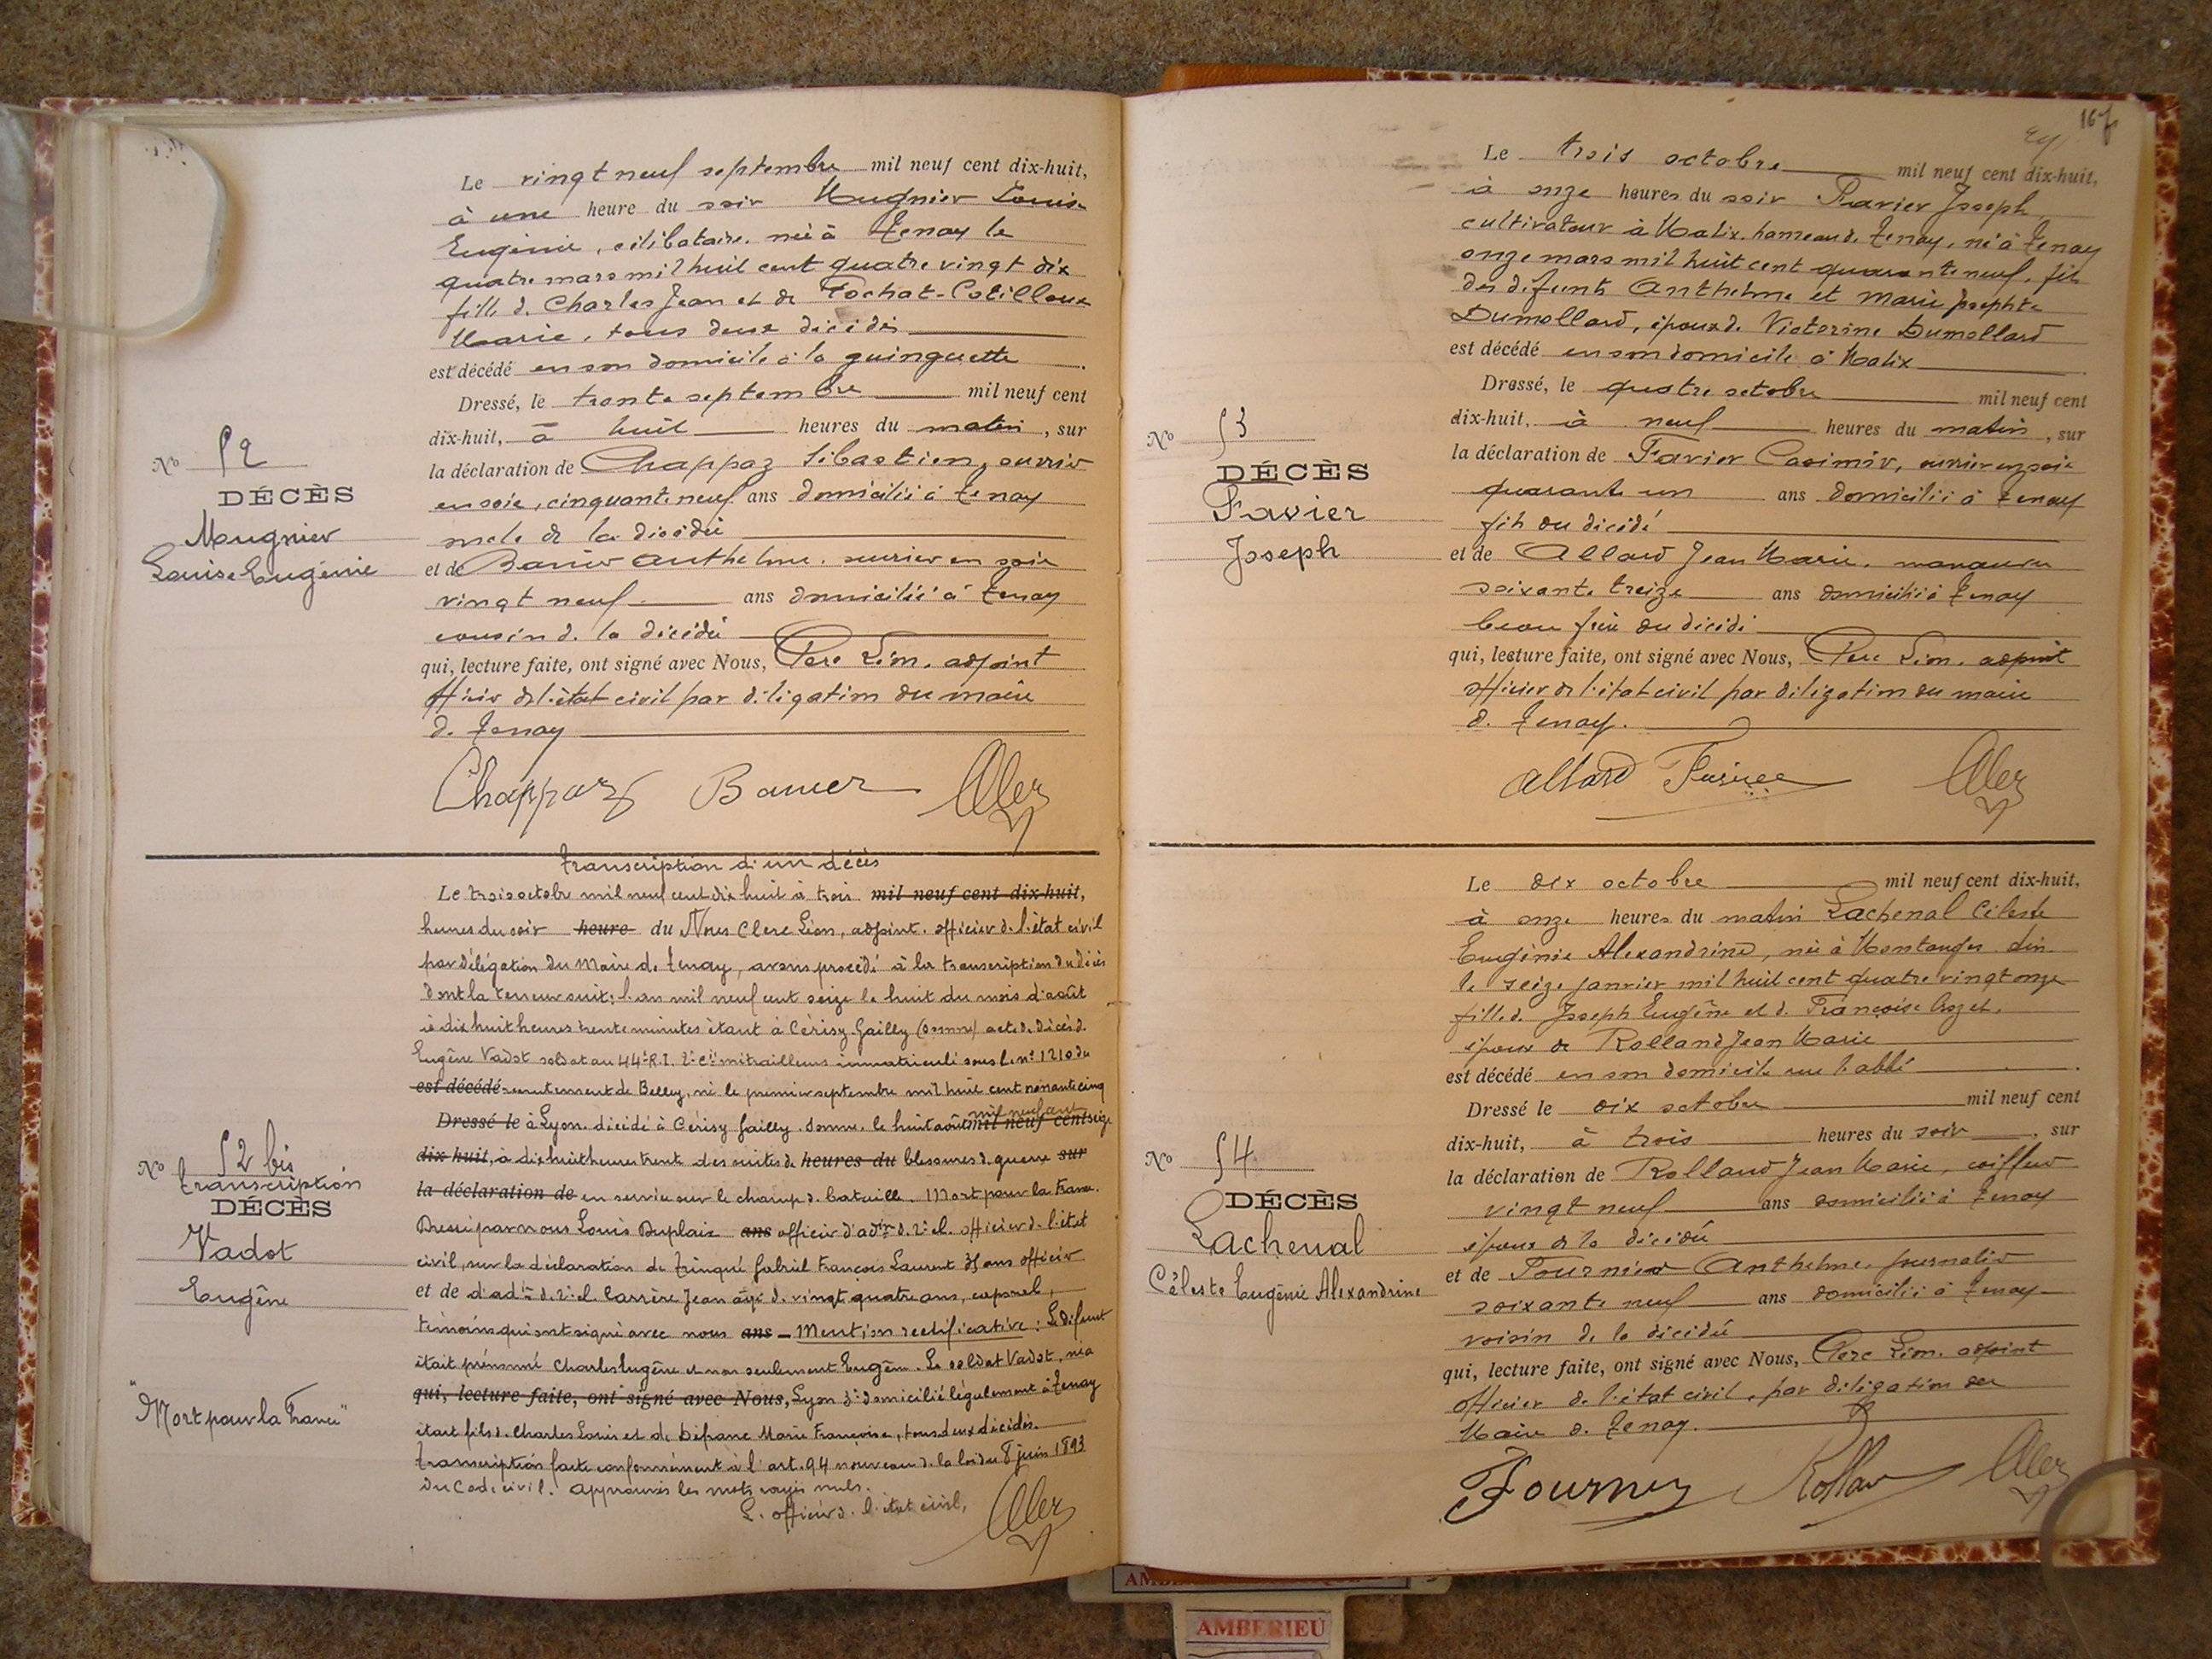 Le vingt neuf septembre mil neuf cent dix-huit,
à une heure du soir Mugnier Louise
Eugénie, célibataire, née à Tenay le
quatre mars mil huit cent quatre vingt dix
fille de Charles Jean et de Fochat-Cotilloux
Marie, tous deux décédés
est décédé en son domicile à la quinquette
Dressé, le trente septembre mil neuf cent
dix-huit, à huit heures du matin, sur
No 52
la déclaration de Chappaz Sébastien, ouvrier
DÉCÈS
en soie, cinquante neuf ans domicilié à Tenay
Mugnier
oncle de la décédée
Louise Eugénie
et de Banier Anthelme, ouvrier en soie
vingt neuf ans domicilié à Tenay
cousin de la décédée
qui, lecture faite, ont signé avec Nous, Clerc Léon, adjoint
officier de l'état civil par délégation du maire
de Tenay
Chappaz Clerc
transcription d'un décès
Le trois octobre mil neuf cent dix huit à trois mil neuf cent dix-huit,
heures du soir heure du Nous Clerc Léon, adjoint, officier de l'état civil
par délégation du Maire de Tenay, avons procédé à la transcription du décès
dont la teneur suit: l'an mil neuf cent seize le huit du mois d'août
à dix huit heures trente minutes étant à Cérisy-Gailly (Somme) acte de décès de
Eugène Vadot soldat au 44e R.I. 2e Cie mitrailleurs immatriculé sous le no 1210 du
est décédé recrutement de Belley, né le premier septembre mil huit cent nonante cinq
Dressé le à Lyon, décédé à Cérisy Gailly, Somme, le huit août mil neuf cent mil neuf cent seize
No 52 bis
transcription
DÉCÈS
Vadot
Eugène
"Mort pour la France"
dix-huit, à dix huit heures trente des suites de heures du blessures de guerre sur
la déclaration de en service sur le champ de bataille. Mort pour la France.
Dressé par nous Louis Duplaix ans officier d'adon de 2e cl. officier de l'état
civil, sur la déclaration de Trinqué Gabriel François Laurent 35 ans officier
et de d'adon de 2e cl. Carrère Jean âgé de vingt quatre ans, caporal,
témoins qui ont signé avec nous ans - Mention rectificative: Le défunt
était prénommé Charles Eugène et non seulement Eugène. Le soldat Vadot, né à
qui, lecture faite, ont signé avec Nous, Lyon 3e domicilié légalement à Tenay
était fils de Charles Louis et de Défranc Marie Françoise, tous deux décédés.
Transcription faite conformément à l'art. 94 nouveau de la loi du 8 juin 1893
du Code civil. Approuvés les mots rayés nuls.
L'officier de l'état civil,
Clerc
167
Le trois octobre mil neuf cent dix-huit,
à onze heures du soir Favier Joseph
cultivateur à Malix, hameau de Tenay, né à Tenay
onze mars mil huit cent quarante neuf, fils
des défunts Anthelme et Marie Josephte
Dumollard, époux de Victorine Dumollard
est décédé en son domicile à Malix
Dressé, le quatre octobre mil neuf cent
No 53
dix-huit, à neuf heures du matin, sur
DÉCÈS
la déclaration de Favier Casimir, ouvrier en soie
Favier
quarante un ans domicilié à Tenay
fils du décédé
Joseph
et de Allard Jean Marie, manœuvre
soixante treize ans domicilié à Tenay
beau frère du décédé
qui, lecture faite, ont signé avec Nous, Clerc Léon, adjoint
officier de l'état civil par délégation du maire
de Tenay.
Allard Clerc
Le dix octobre mil neuf cent dix-huit,
à onze heures du matin Lachenal Céleste
Eugénie Alexandrine, née à Montanges Ain
le seize janvier mil huit cent quatre vingt onze
fille de Joseph Eugène et de Françoise
épouse de Rolland Jean Marie
est décédé en son domicile rue l'abbé
Dressé le dix octobre mil neuf cent
No 54
dix-huit, à trois heures du soir, sur
DÉCÈS
la déclaration de Rolland Jean Marie, coiffeur
Lachenal
vingt neuf ans domicilié à Tenay
époux de la décédée
Céleste Eugénie Alexandrine
et de Fournier Anthelme, journalier
soixante neuf ans domicilié à Tenay
voisin de la décédée
qui, lecture faite, ont signé avec Nous, Clerc Léon, adjoint
officier de l'état civil, par délégation du
Maire de Tenay.
Fournier Rolland Clerc
AMBERIEU